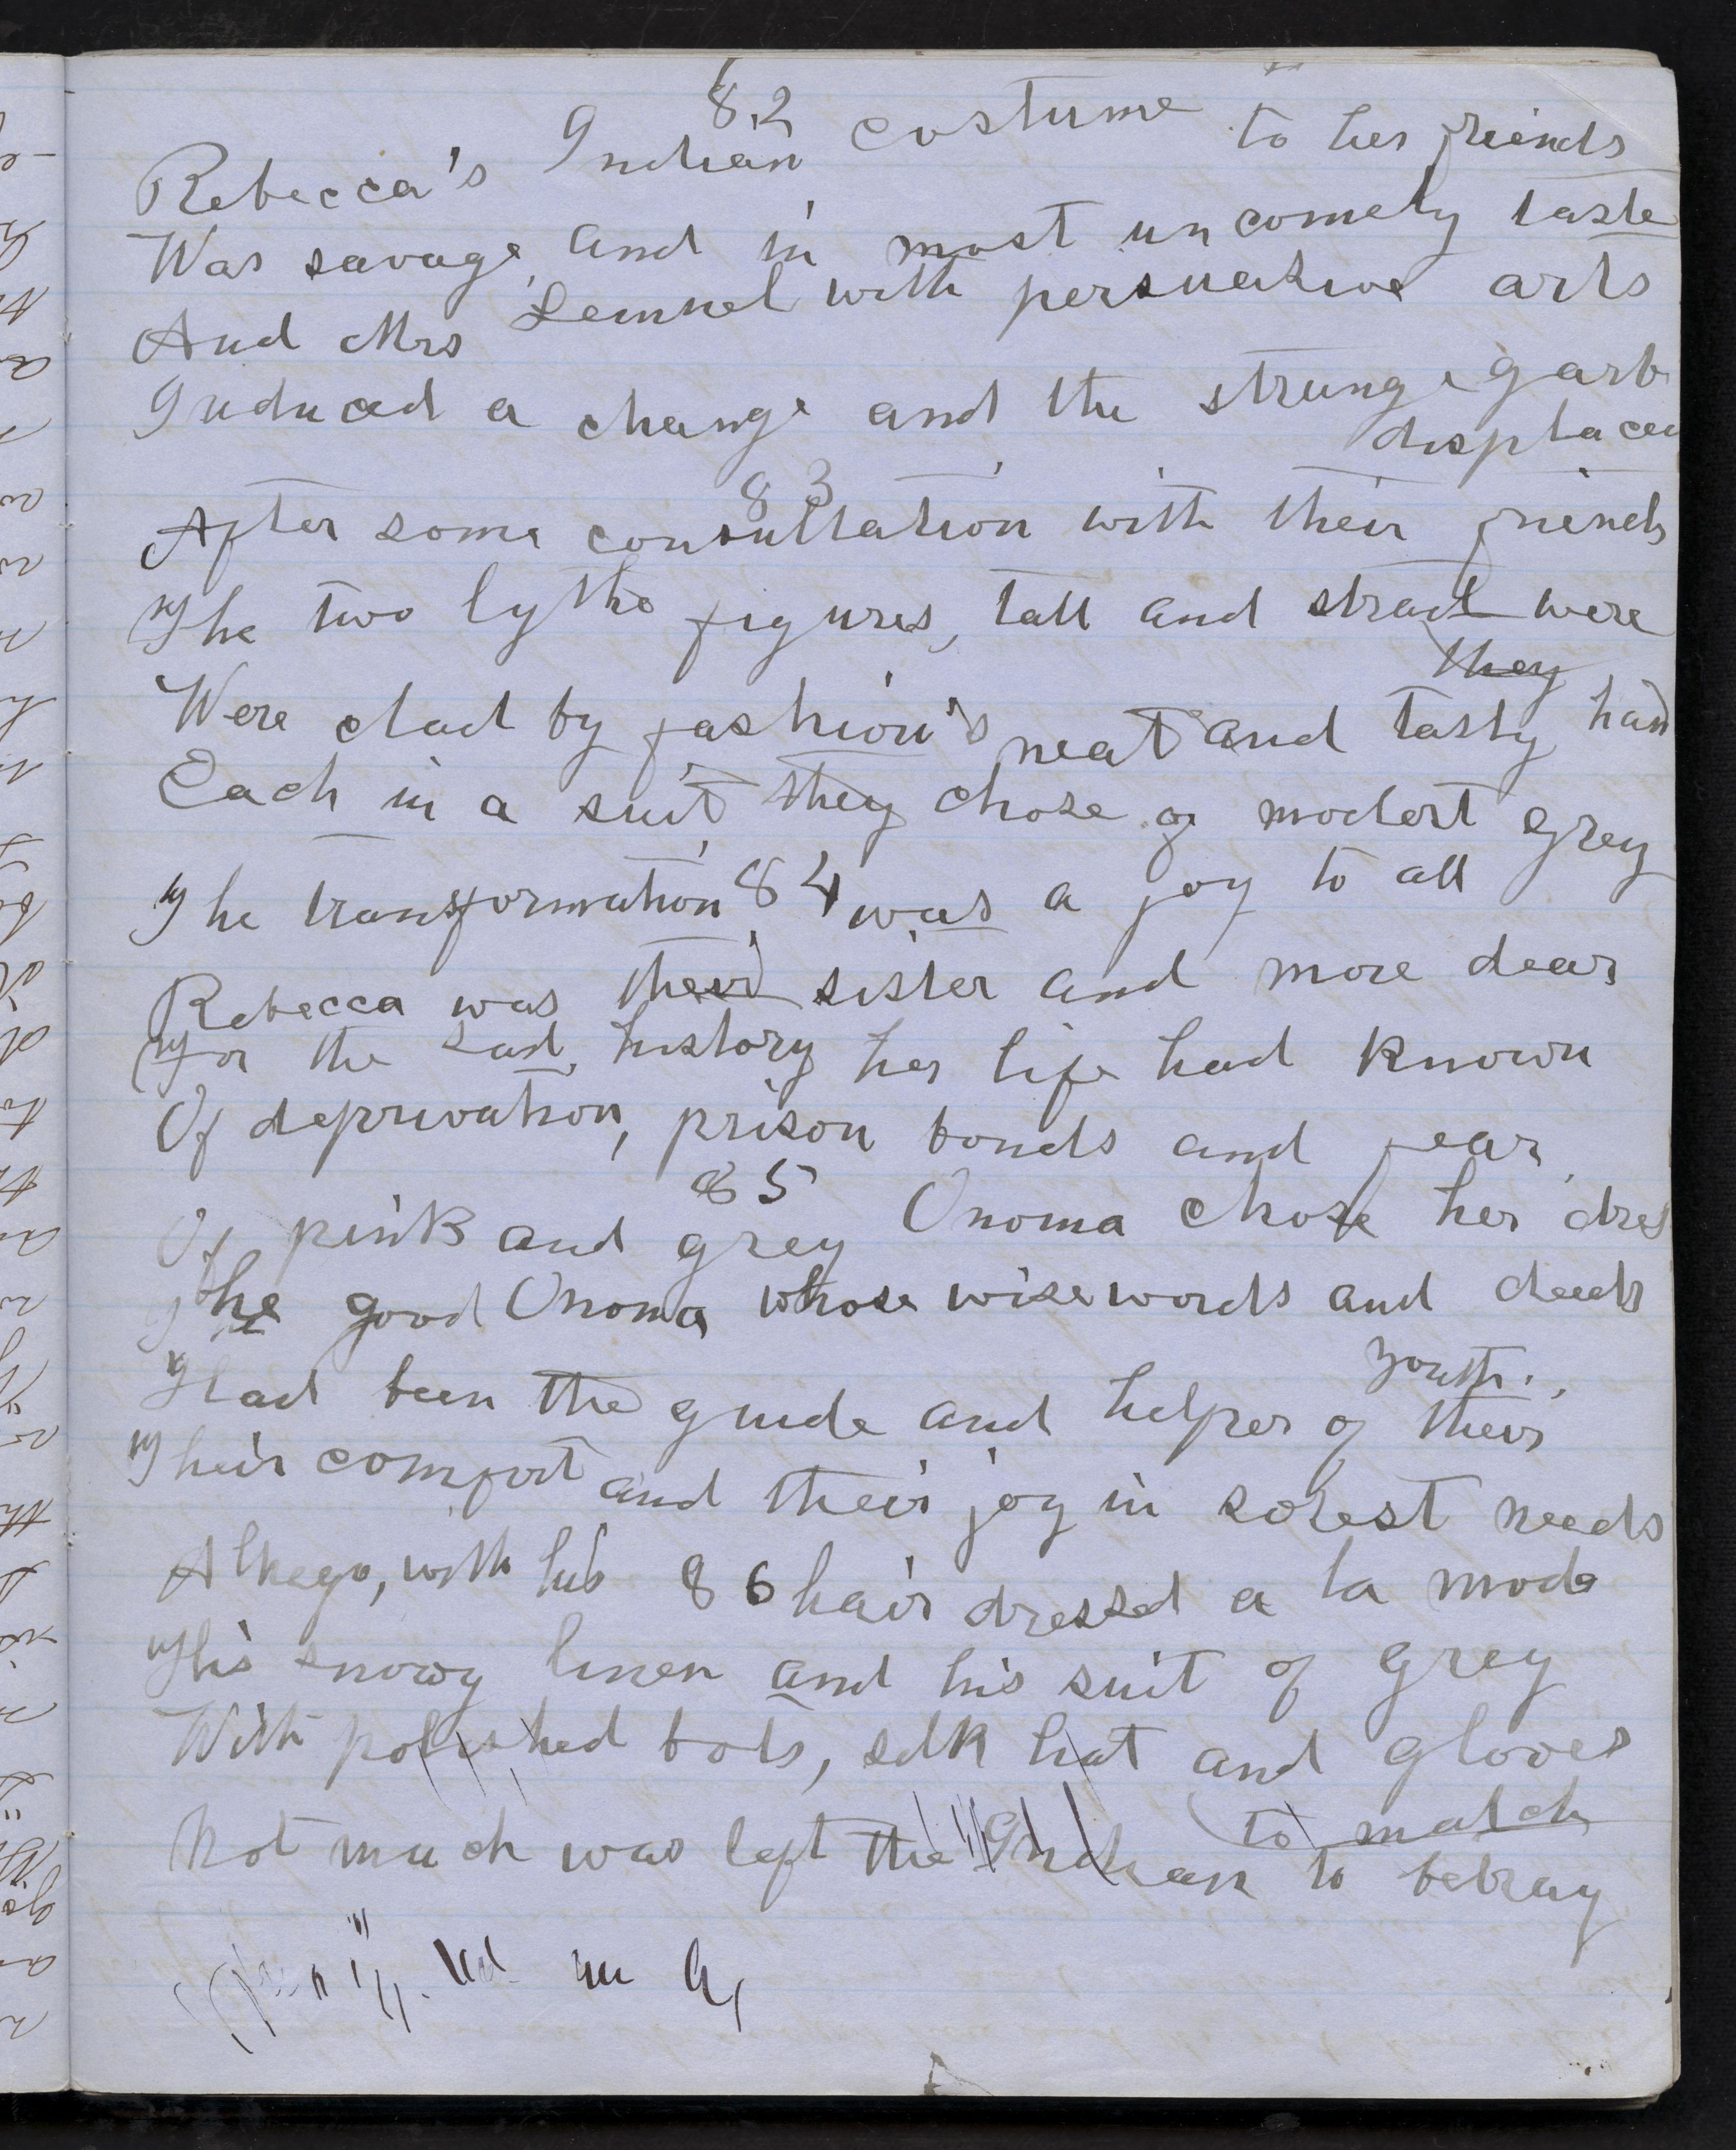 82
Rebecca's Indian costume to her friends
Was savage and in most uncomely taste
And Mrs Lemuel with persuasive arts
Induced a change and the strange garb
displaced
83
After some consultation with their friends
The two lythe figures, tall and strait were
they
Were clad by fashion's neat and tasty hand
Each in a suit they chose of modest grey
84
The transformation was a joy to all
Rebecca was their sister and more dear
For the sad history her life had known
Of deprivation, prison bonds and fear
85
Of pink and grey Onoma chose her dres
The good Onoma whose wise words and deeds
Had been the guide and helper of their
youth.
Their comfort and their joy in sorest needs
86
Alkego, with his hair dressed a la mode
His snowy linen and his suit of grey
With polished bots, silk hat and gloves
to match
Not much was left the Indian to betray